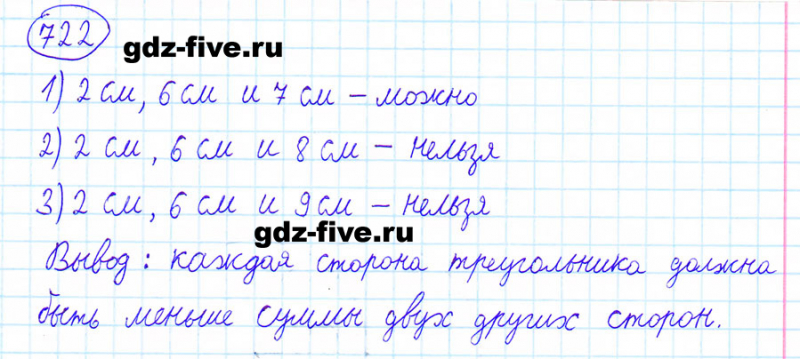 722
gdz-five.ru
1) 2 см, 6 см и 7 см – можно
2) 2 см, 6 см и 8 см – нельзя
3) 2 см, 6 см и 9 см – нельзя
gdz-five.ru
Вывод: каждая сторона треугольника должна
быть меньше суммы двух других сторон.